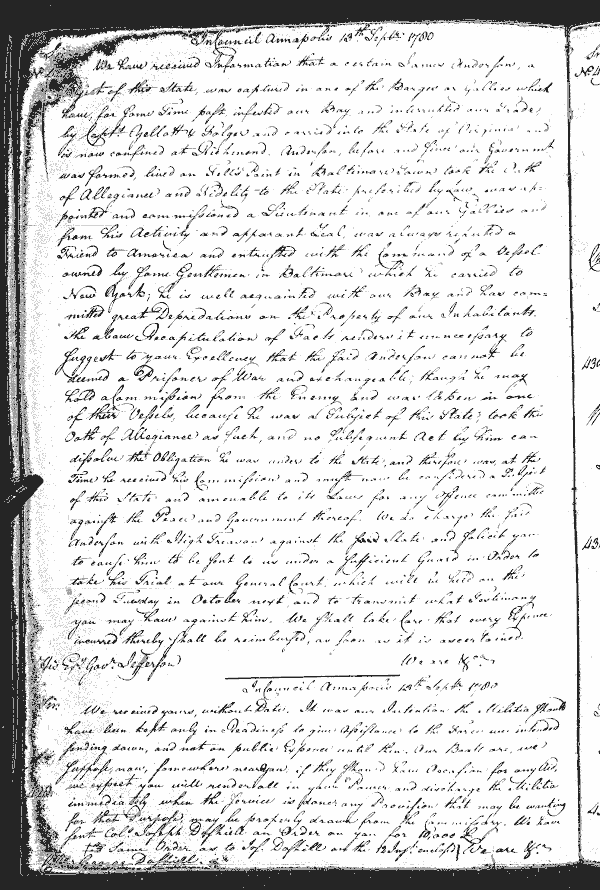 In Council Annapolis 13th Septr. 1780
We have received Information that a certain James Anderson, a
Subject of this State, was captured in one of the Barges or Gallies which
have, for some Time past, infested our Bay and interrupted our Trade,
by Capts. Yellott & Folger and carried into the State of Virginia and
is now confined at Richmond. Anderson, before and since our Government
was formed, lived on Fell's Point in Baltimore Town took the Oath
of Allegiance and Fidelity to the State prescribed by Law, was ap-
pointed and commissioned a Lieutenant in one of our Gallies and
from his Activity and apparant Zeal, was always reputed a
Friend to America and entrusted with the Command of a Vessel
owned by some Gentlemen in Baltimore which he carried to
New York; he is well acquainted with our Bay and has com-
mitted great Depredations on the Property of our Inhabitants.
The above Recapitulation of Facts renders it unnecessary to
suggest to your Excellency that the said Anderson cannot be
deemed a Prisoner of War and exchangeable; though he may
hold a Commission from the Enemy and was taken in one
of their Vessels, because he was a Subject of this State; took the
Oath of Allegiance as such, and no subsequent Act by him can
dissolve the Obligation he was under to the State, and therefore was, at the
Time he received his Commission and must now be considered a Subject
of this State and amenable to its Laws for any Offence committed
against the Peace and Government thereof. We do charge the said
Anderson with High Treason against the State and solicit you
to cause him to be sent to us under a sufficient Guard in Order to
take his Trial at our General Court, which will be held on the
second Tuesday in October next and to transmit what Testimony
you may have against him. We shall take Care that every Expence
incurred thereby shall be reimbursed, as soon as it is ascertained.
We are &ca
His Exy. Govr. Jefferson
In Council Annapolis 13th Septr. 1780
Sir.
We received yours, without Date. It was our Intention the Militia should
have been kept only in Readiness to give Assistance to the Force we intended
sending down, and not on public Expence until then. Our Boats are, we
suppose, now, somewhere near you, if they should have Occasion for any Aid,
we expect you will render all in your Power and discharge the Militia
immediately when the Service is done; any Provision that may be wanting
for that Purpose, may be properly drawn from the Commissary. We have
sent Colo. Joseph Dashiell an Order on you for 10,000
Same Order as to Jos. Dashiell on the 12 Inst. We are &ca
George Dashiell